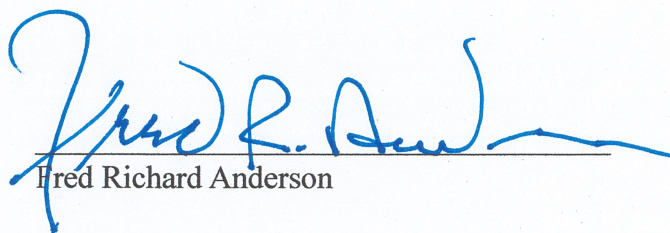 Fred R. Anderson
Fred Richard Anderson